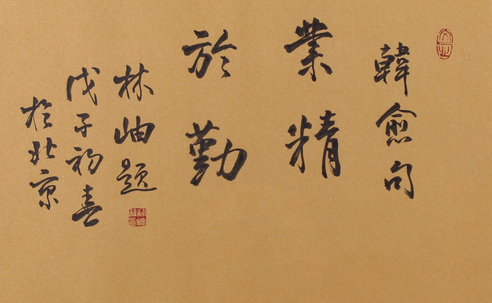 韓愈句
業精
於勤
林岫題
戊子初
於北京